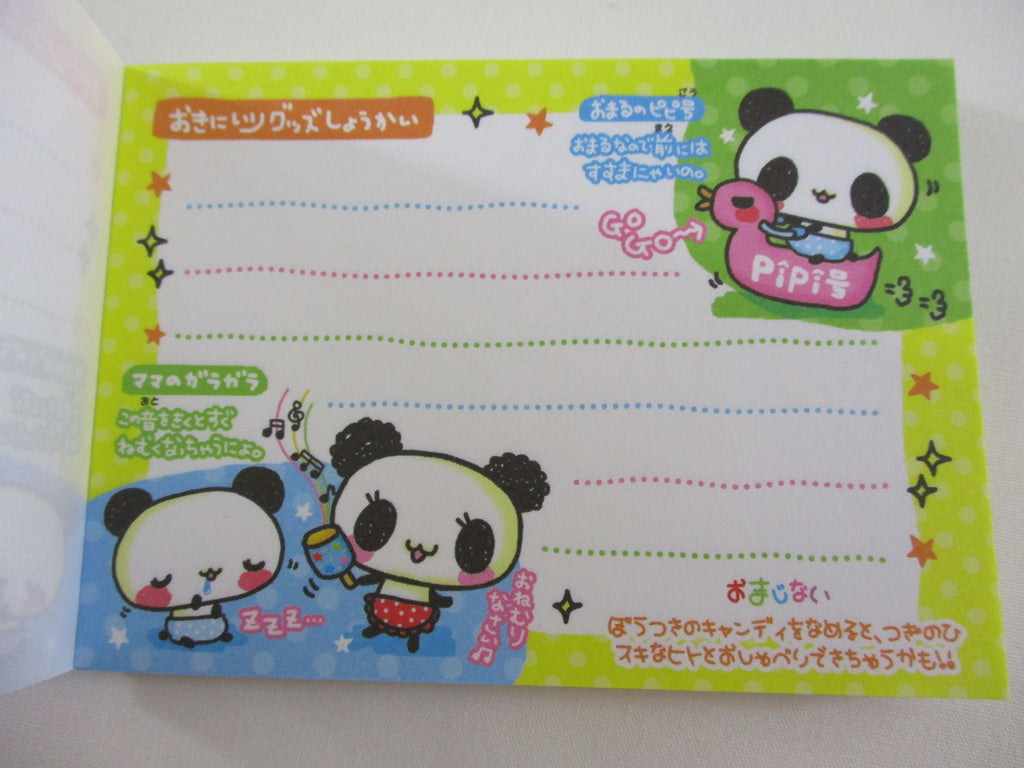 おきにいりグッズしょうかい
おまるのピピ号
ごう
おまるなので前には
まえ
すすまにゃいの。
GO
GO
PiPi号
ママのガラガラ
この音をきくとすぐ
おと
ねむくなっちゃうにょ。
ZZZ…
おねむり
なさい♫
おまじない
ぼうつきのキャンディをなめると、つぎのひ
スキなヒトとおしゃべりできちゃうかも!!